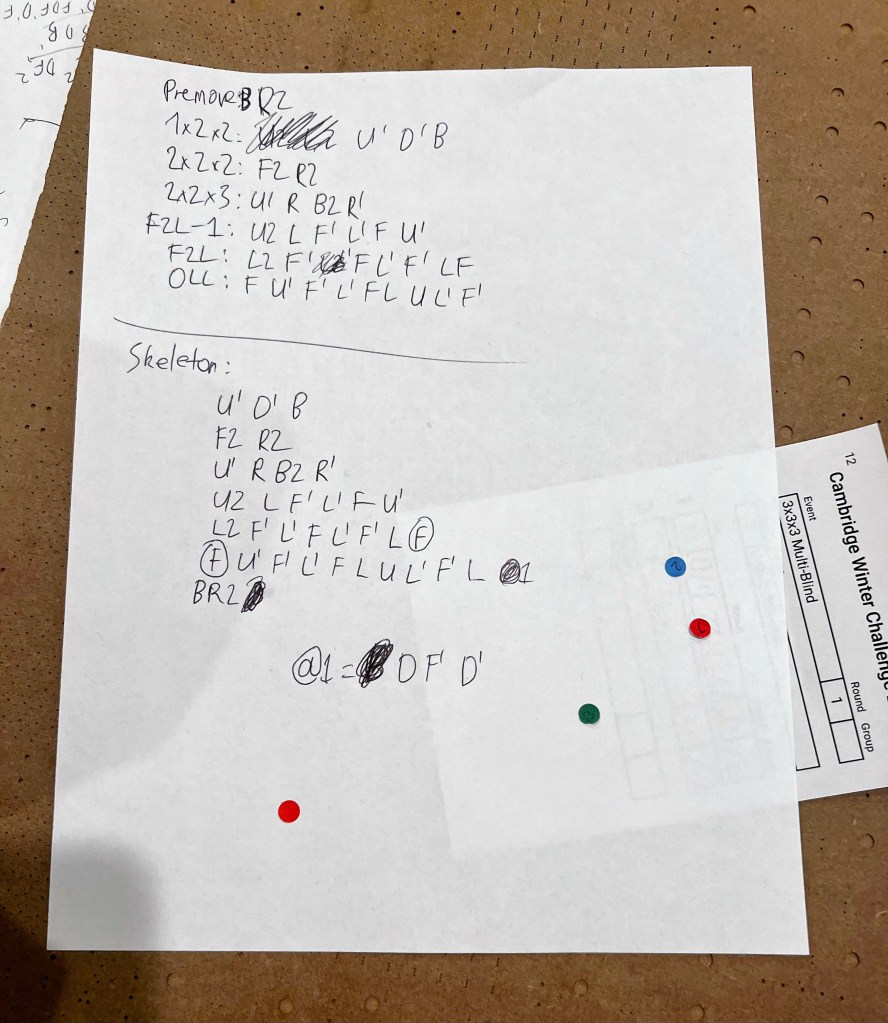 Premoves BR2
1x2x2: U' D' B
2x2x2: F2 R2
2x2x3: U' R B2 R'
F2L-1: U2 L F' L' F U'
F2L: L2 F' F L' F' L F
OLL: F U' F' L' F L U L' F'
Skeleton:
U' D' B
F2 R2
U' R B2 R'
U2 L F' L' F U'
L2 F' L' F L' F' L F
F U' F' L' F L U L' F' L @1
BR2
@1 = D F' D'
12
Cambridge Winter Challenge
Event
Round
Group
3x3x3 Multi-Blind
1